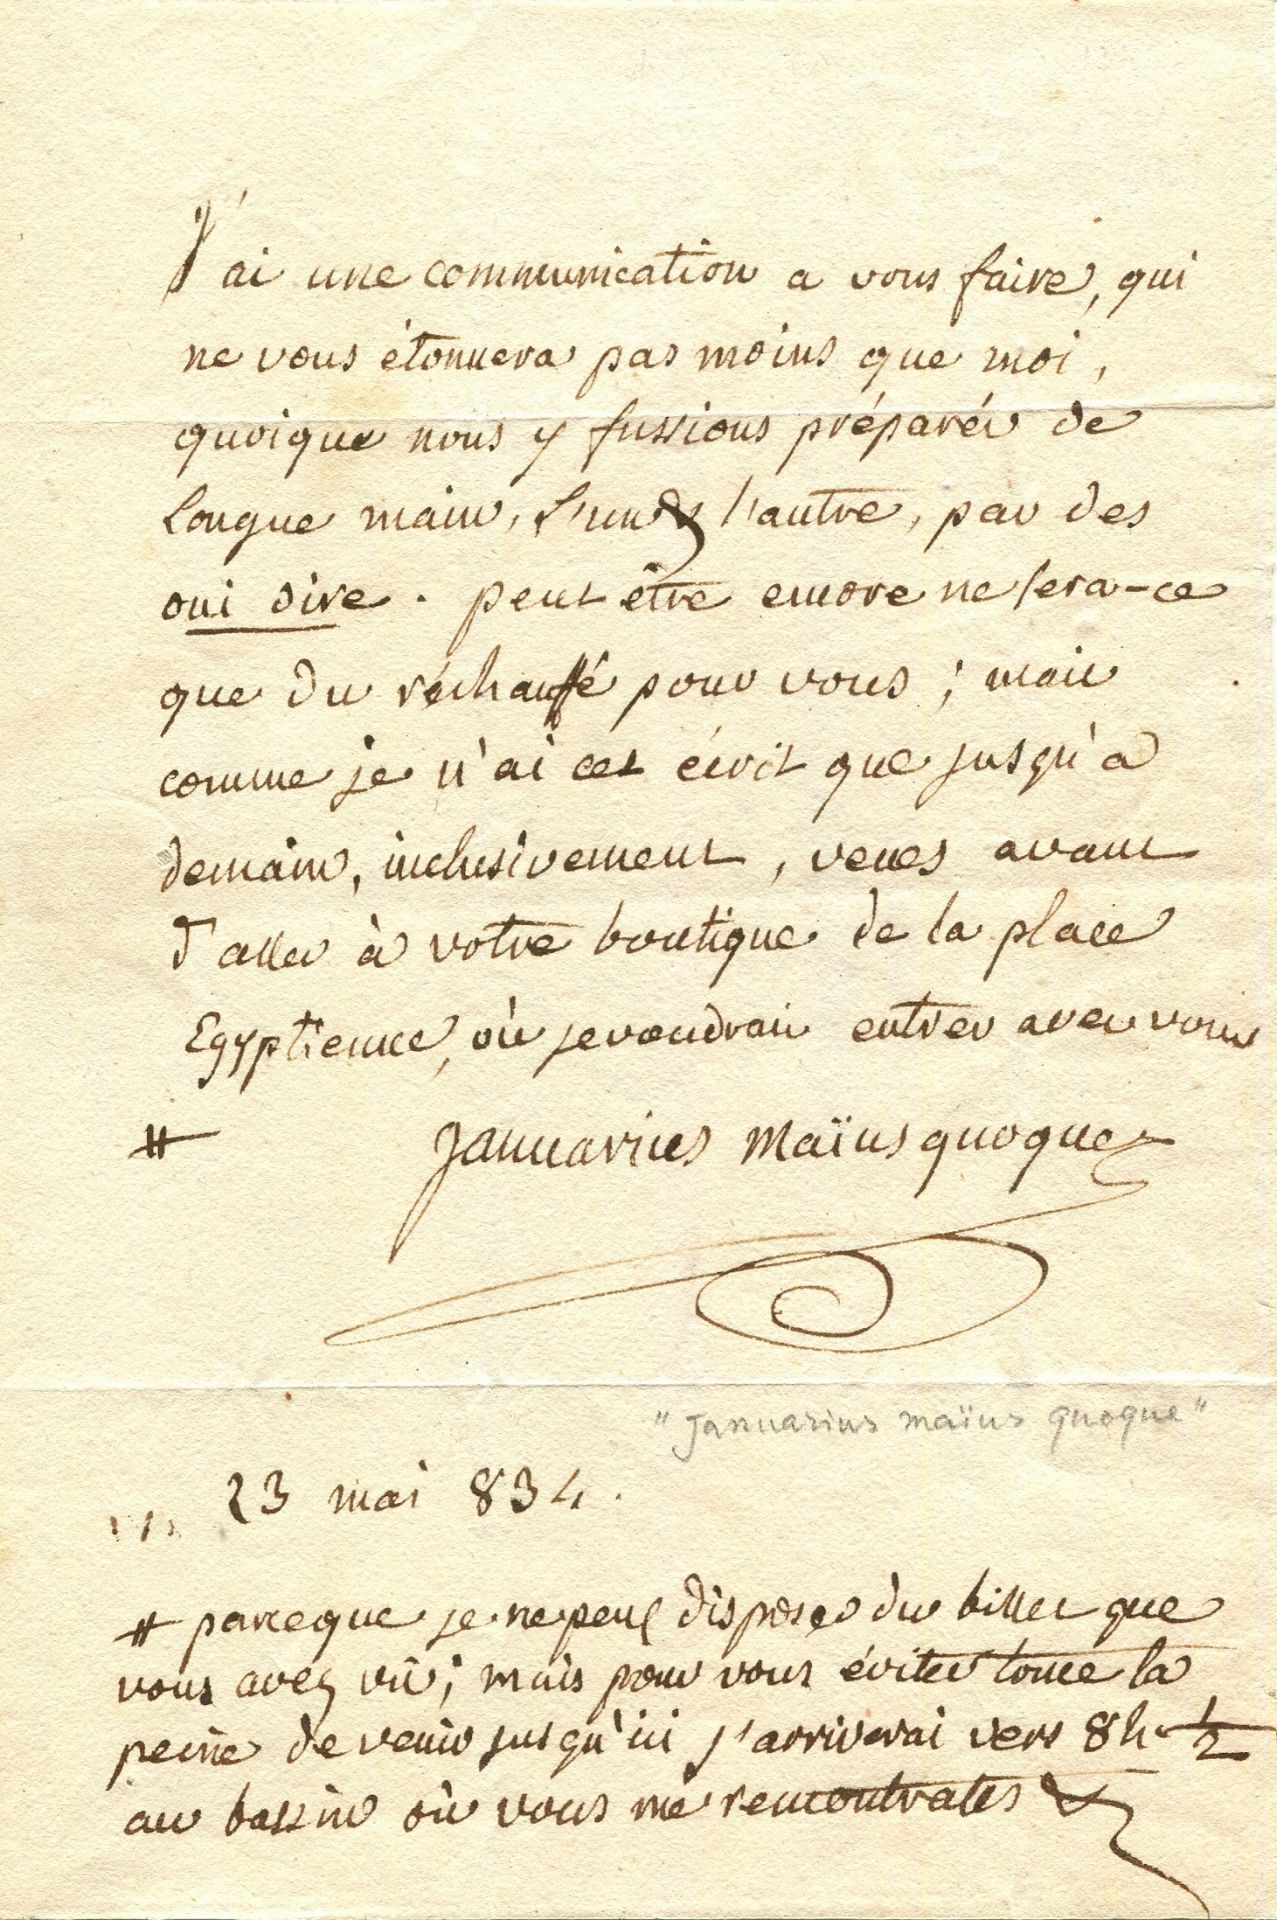 J'ai une communication a vous faire, qui
ne vous étonnera pas moins que moi,
quoique nous y fussions préparés de
longue main, l'un & l'autre, par des
oui dire. peut être encore ne sera-ce
que du réchauffé pour vous ; mais
comme je n'ai cet écrit que jusqu'a
demain, inclusivement, venes avant
d'aller à votre boutique de la place
Egyptienne, où je voudrais entrer avec vous
# Januarius Maïus quoque
"Januarius maïus quoque"
23 mai 834.
# parceque je ne peux disposer du billet que
vous avez vû ; mais pour vous éviter toute la
peine de venir jusqu'ici j'arriverai vers 8h. 1/2
au bassin où vous me rencontrates &